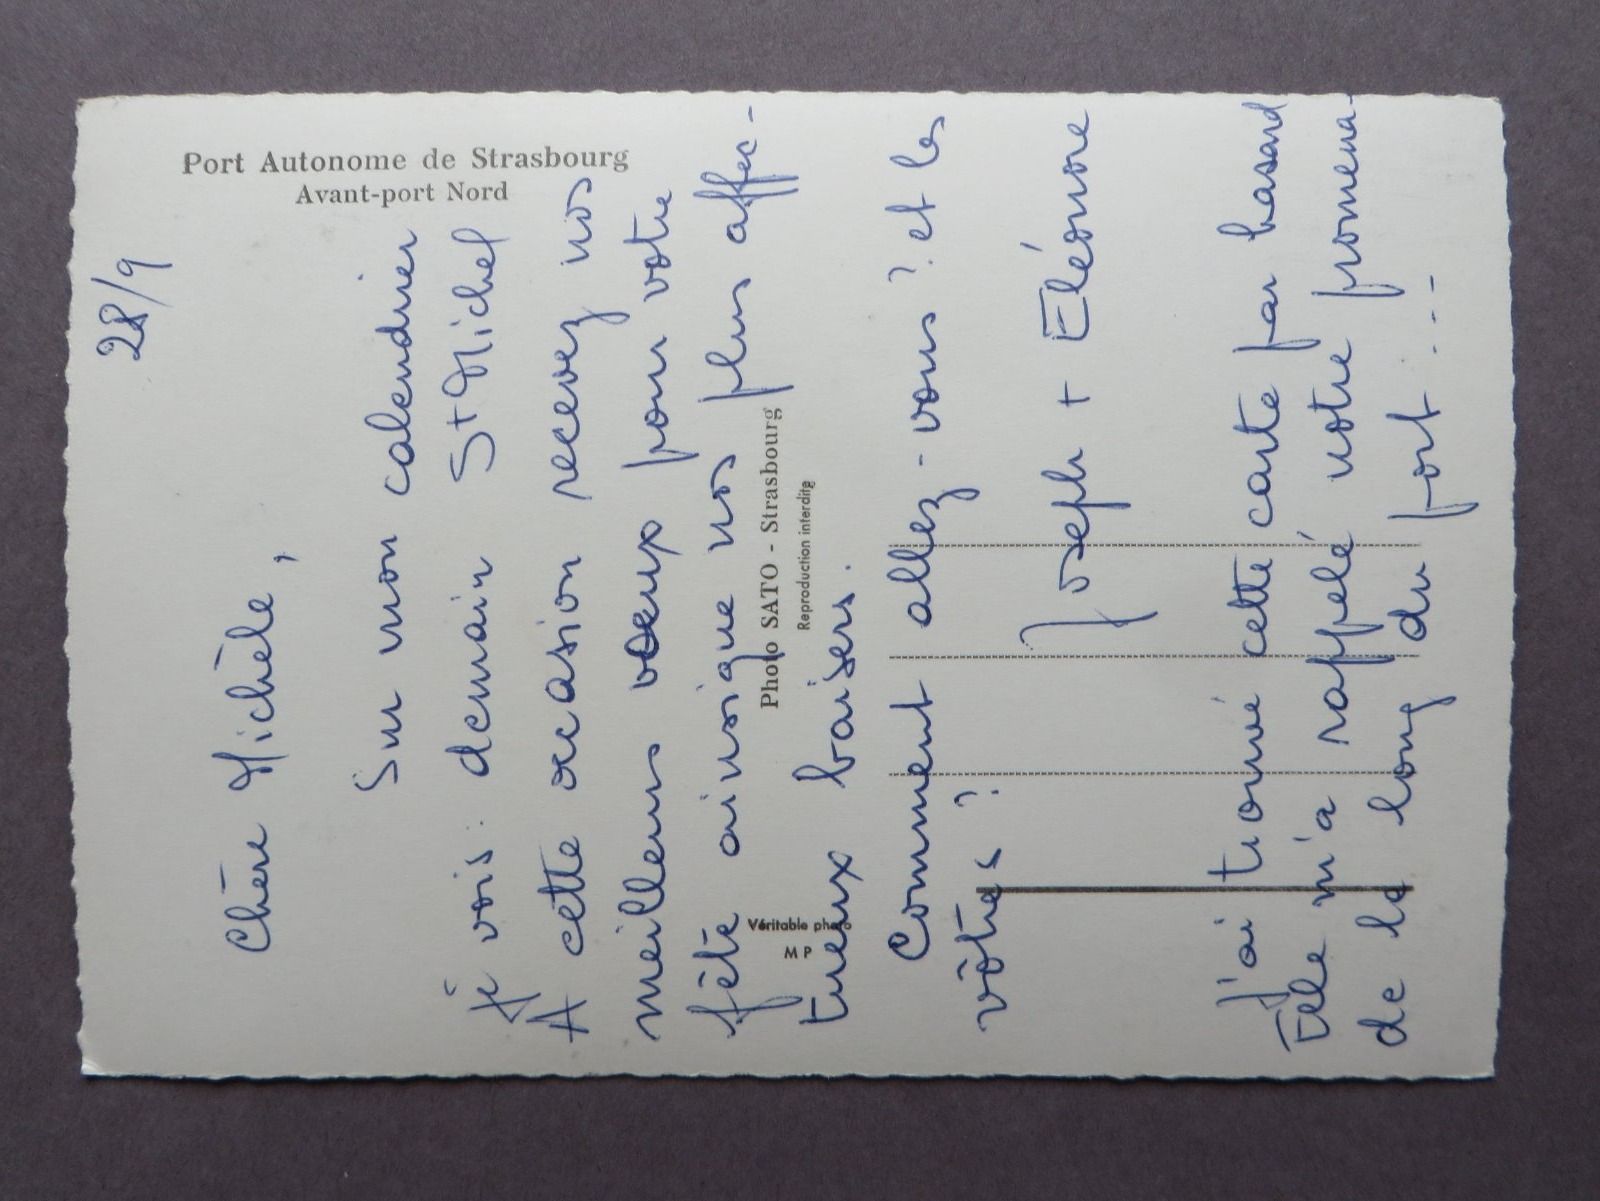 Port Autonome de Strasbourg
Avant-port Nord
28/9
Chère Michèle,
Sur mon calendrier
je vois : demain St Michel
A cette occasion recevez nos
meilleurs voeux pour votre
fête ainsique nos plus affec-
tueux baisers.
Comment allez-vous ? et les
vôtres ?
Joseph + Eléonore
J'ai trouvé cette carte par hasard
Elle m'a rappelé notre promena-
de le long du port ...
Photo SATO - Strasbourg
Reproduction interdite
Véritable photo
M P